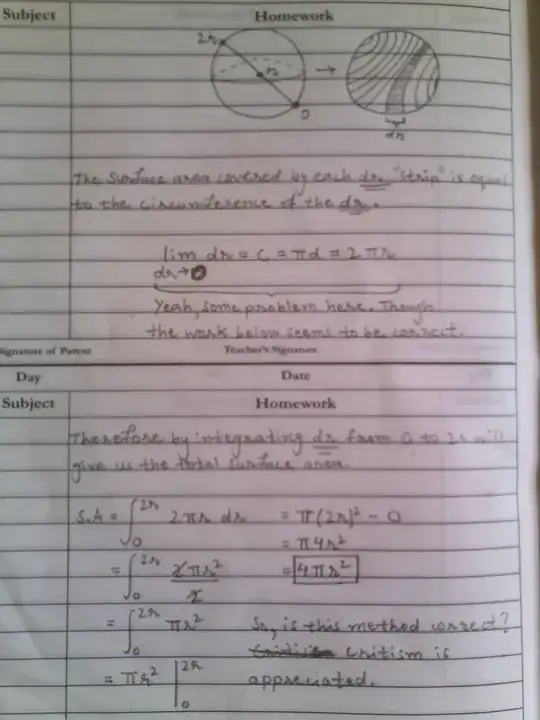 Subject Homework
2r
r
0
→
dr
The Surface area covered by each dr "strip" is equal
to the circumference of the dr.
lim dr = C = πd = 2πr
dr→0
Yeah, some problem here. Though
the work below seems to be correct.
Signature of Parent Teacher's Signature
Day Date
Subject Homework
Therefore by integrating dr from 0 to 2r will
give us the total surface area.
S.A = ∫₀²ʳ 2πr dr = π(2r)² - 0
= π4r²
= ∫₀²ʳ 2πr²/2 = 4πr²
= ∫₀²ʳ πr² So, is this method correct?
Critism is
= πr² |₀²ʳ appreciated.